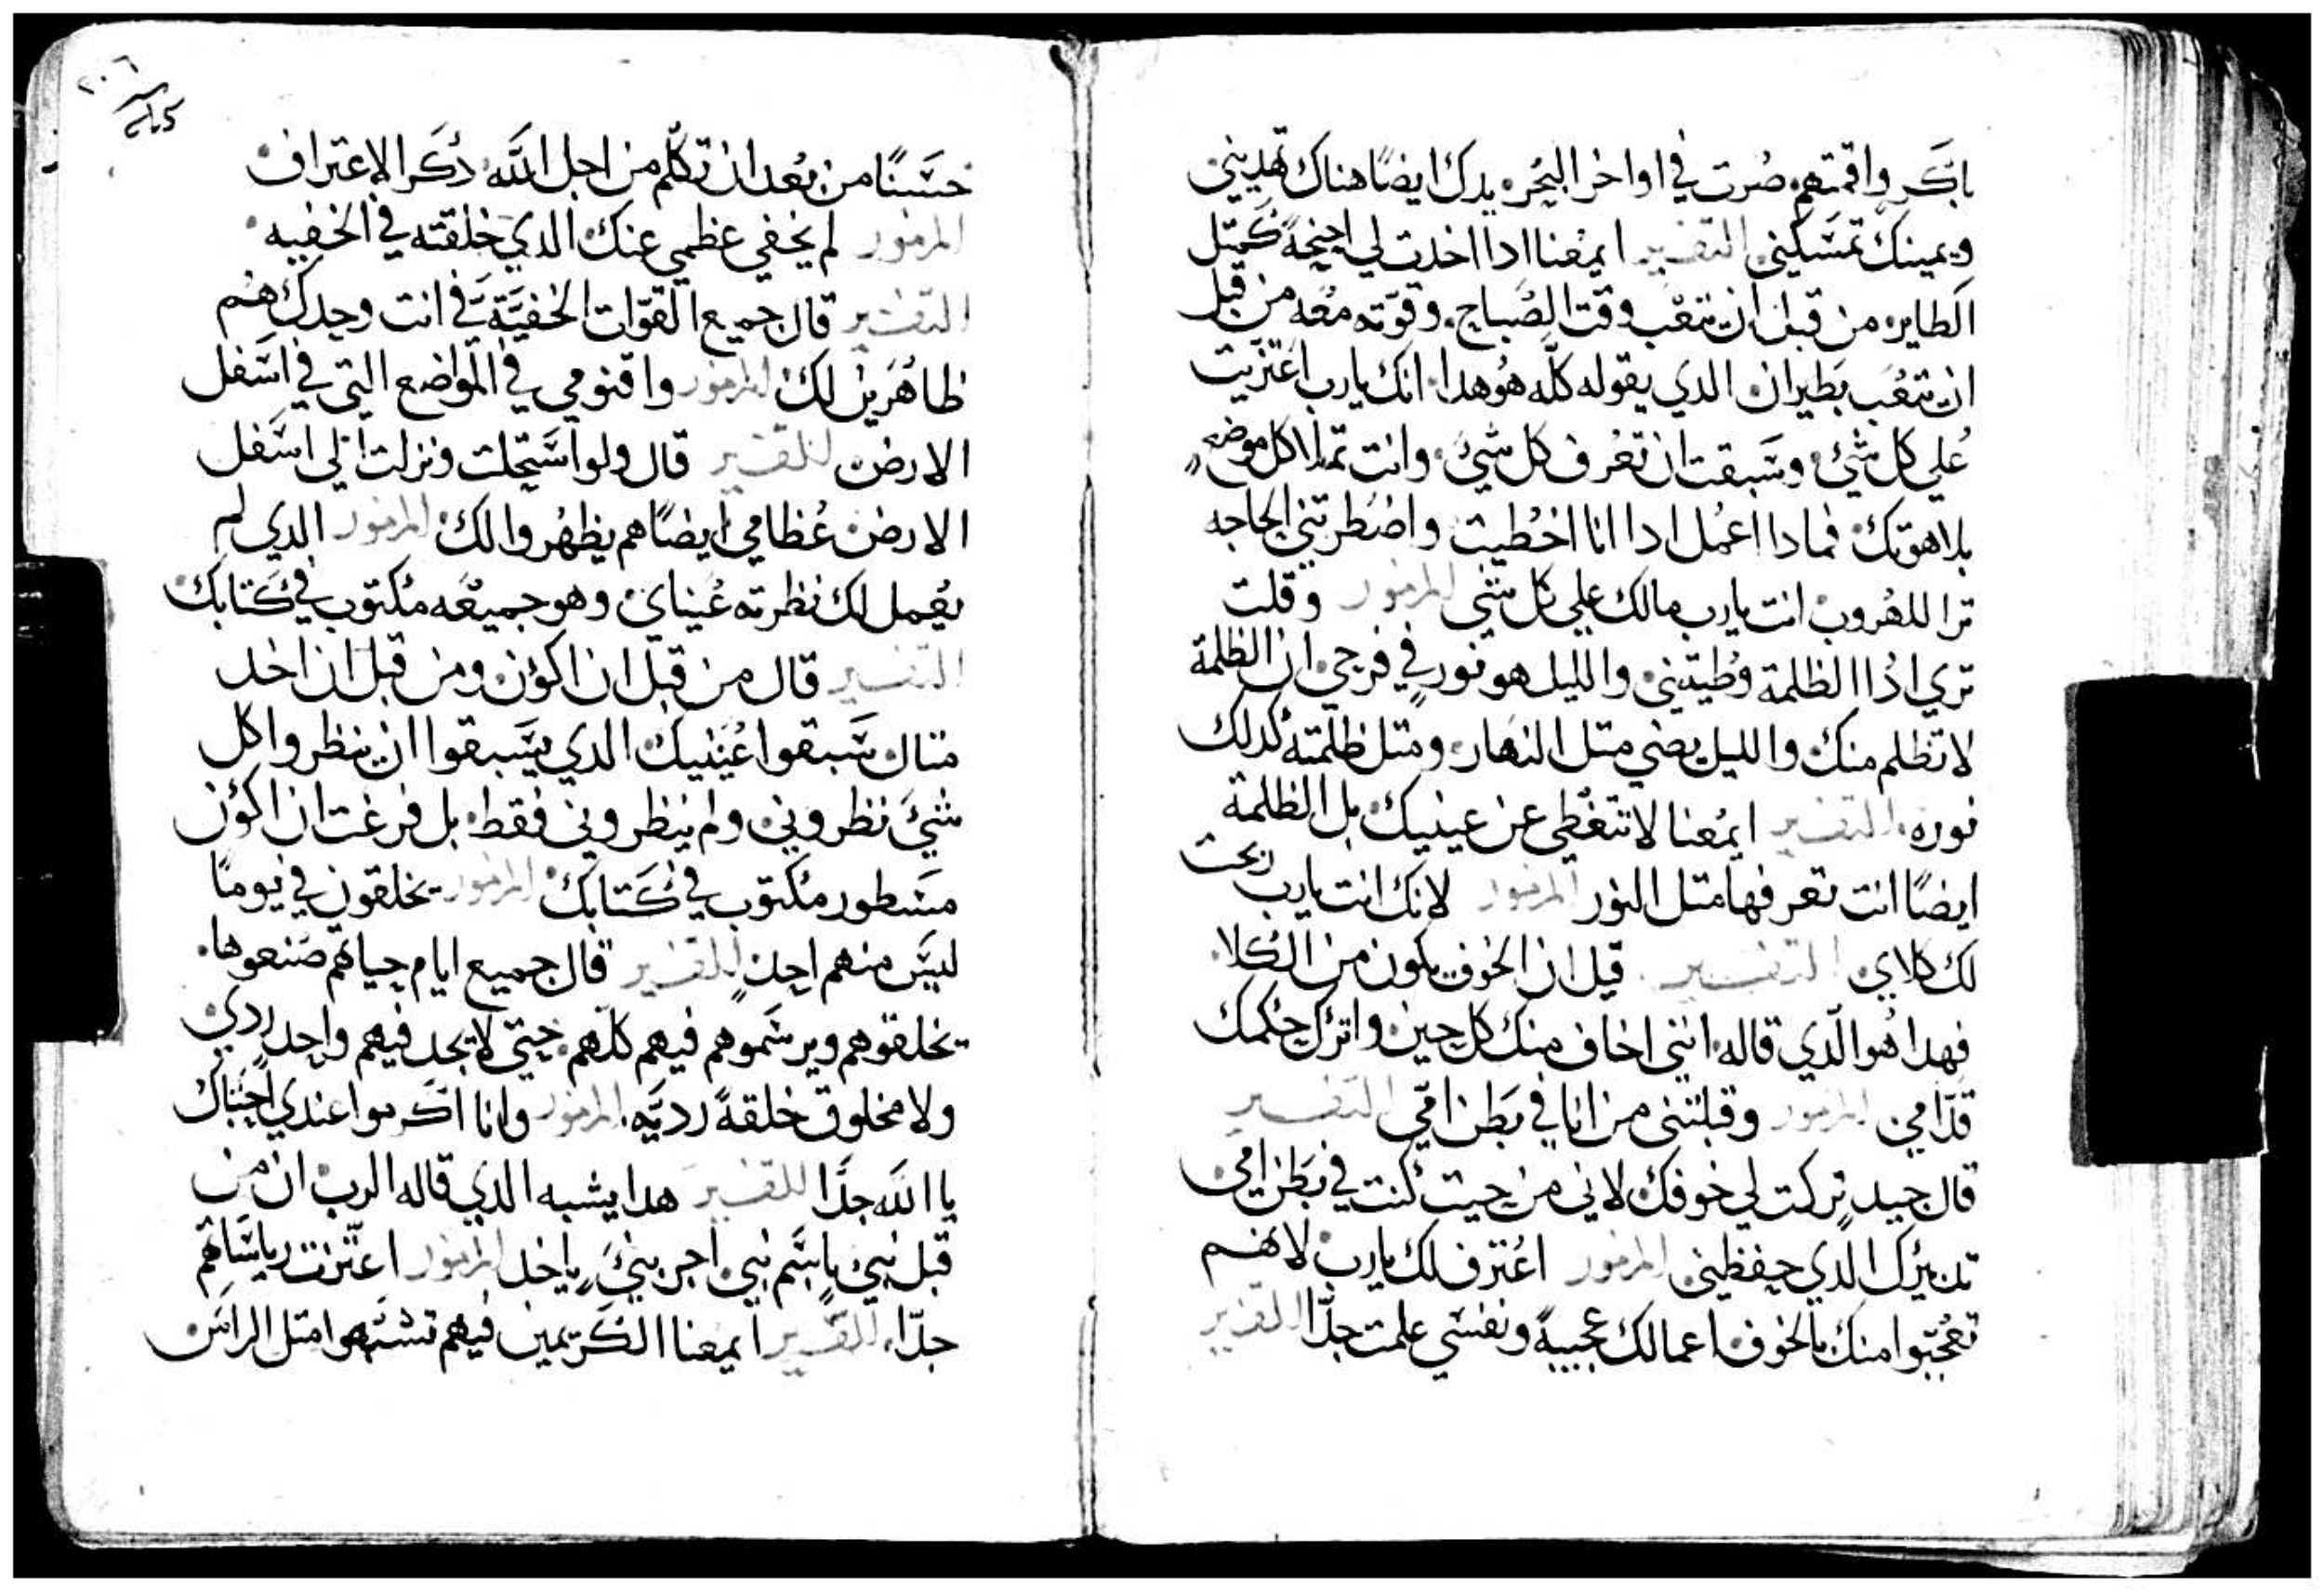 باكر واقمتهم صرت في اواخر البحر يدك ايضًا هناك تهديني
ويمينك تمسكني التفسير ايمعنا ادا اخدت لي اجنحة كمتل
الطاير من قبل ان يتعب وقت الصباح وقوته معه من قبل
ان يتعب بطيران الدي يقوله كله هو هدا انك يارب اعتزيت
علي كل شي وسبقت ان تعرف كل شي وانت تملا كل موضع
بلاهوتك فمادا اعمل ادا انا اخطيت واضطرتني الحاجه
ترا للهروب انت يارب مالك علي كل شي المزمور وقلت
تري ادا الظلمة وطيتني والليل هو نور في فرحي ان الظلمة
لا تظلم منك والليل يضي متل النهار ومتل ظلمته كدلك
نوره التفسير ايمعنا لا تتغطي عن عينيك بل الظلمة
ايضًا انت تعرفها متل النور المزمور لانك انت يارب ربحت
لك كلاي التفسير قيل ان الخوف يكون من الكلا
فهدا هو الدي قاله انني اخاف منك كل حين واترك حكمك
قدامي المزمور وقبلتني من انا في بطن امي التفسير
قال جيد تركت لي خوفك لاني من حيت كنت في بطن امي
تدبيرك الدي حفظني المزمور اعترف لك يارب لانهم
تعجبوا منك بالخوف اعمالك عجيبة ونفسي علمت جدًا التفسير
٢٠٦
حسنًا من بعد ان تكلم من اجل الله دكر الاعتراف
المزمور لم يخفي عظمي عنك الدي خلقته في الخفيه
التفسير قال جميع القوات الخفية في انت وحدك هم
ظاهرين لك المزمور واقنومي في المواضع التي في اسفل
الارض التفسير قال ولو استحلت ونزلت الي اسفل
الارض عظامي ايضًا هم يظهروا لك المزمور الدي لم
يعمل لك نظرته عيناي وهو جميعه مكتوب في كتابك
التفسير قال من قبل ان اكون ومن قبل ان اخد
متال سبقوا عينيك الدي يسبقوا ان ينظروا كل
شي نظروني ولم ينظروني فقط بل فرغت ان اكون
مسطور مكتوب في كتابك المزمور يخلقون في يومًا
ليس منهم احد التفسير قال جميع ايام حياهم صنعوها
يخلقوهم ويرسموهم فيهم كلهم حتي لا يجد فيهم واحد ردي
ولا مخلوق خلقة رديه المزمور وانا اكرموا عندي احباك
يا الله جدًا التفسير هدا يشبه الدي قاله الرب ان من
قبل نبي باسم نبي اجر نبي ياخد المزمور اعتزت رياساتهم
جدًا التفسير ايمعنا الكريمين فيهم تشبهوا متل الراس